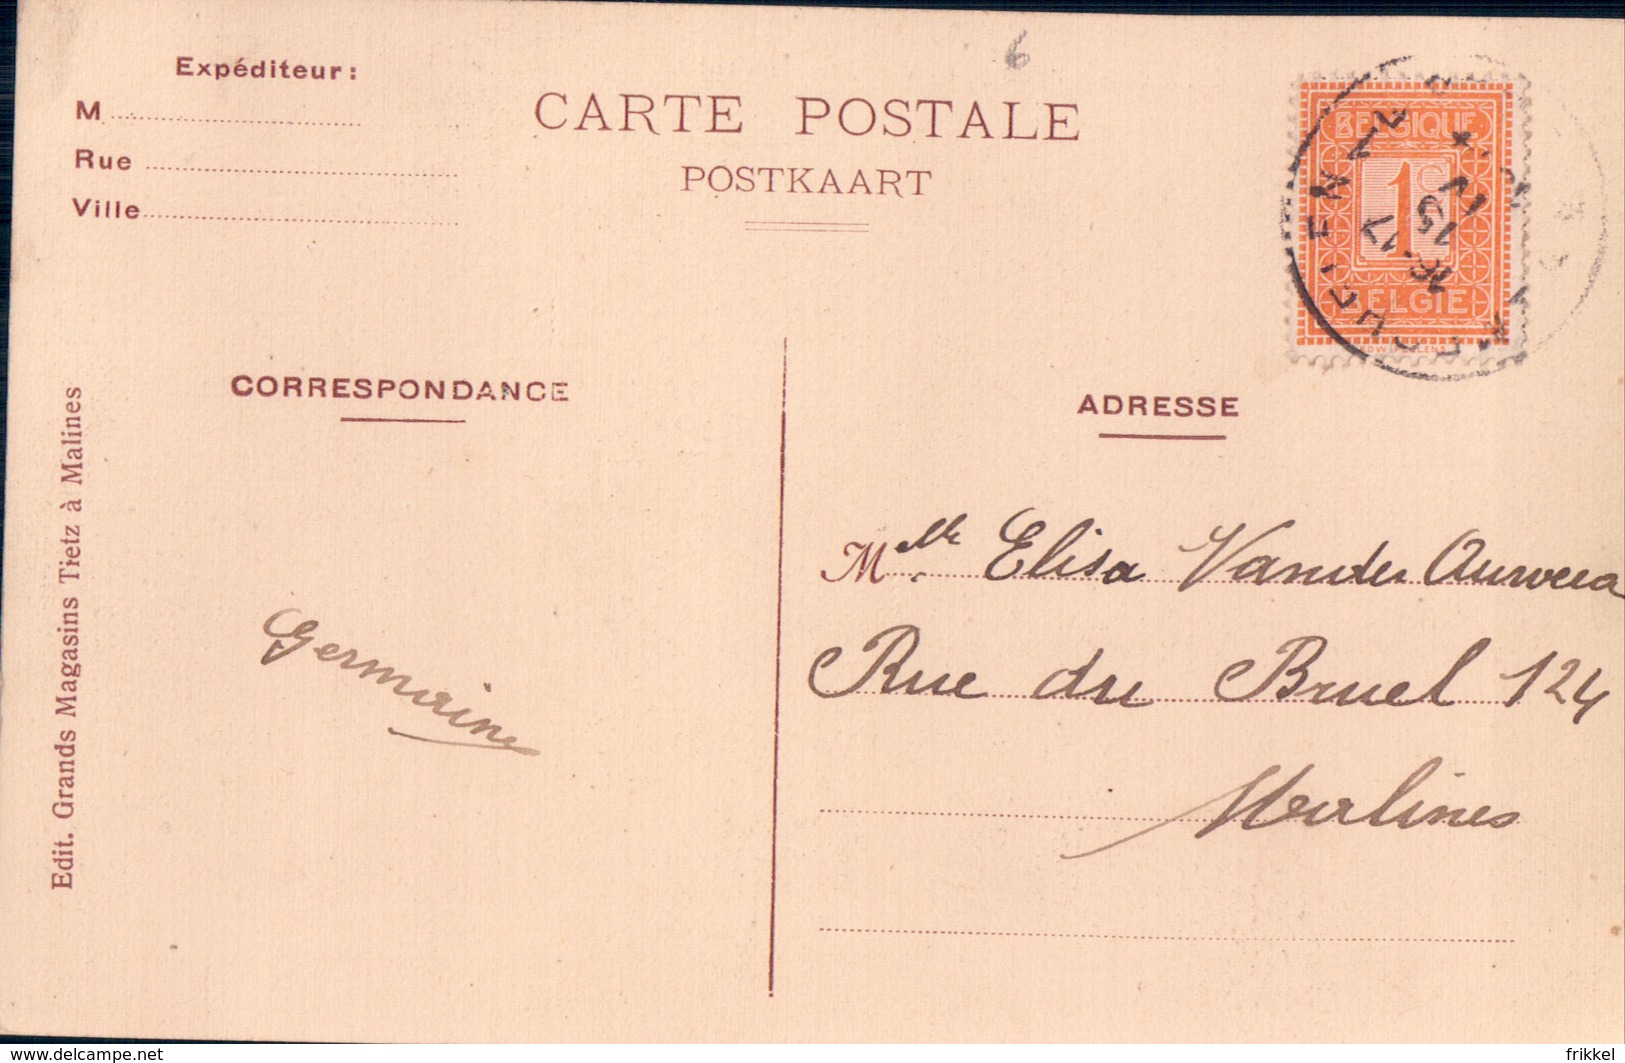 Expéditeur :
M
Rue
Ville
6
CARTE POSTALE
POSTKAART
BELGIQUE
1c
BELGIE
16-17
15
VI
CORRESPONDANCE
ADRESSE
Germaine
Mlle Elisa Vander Auwera
Rue du Bruel 124
Malines
Edit. Grands Magasins Tietz à Malines
www.delcampe.net
frikkel